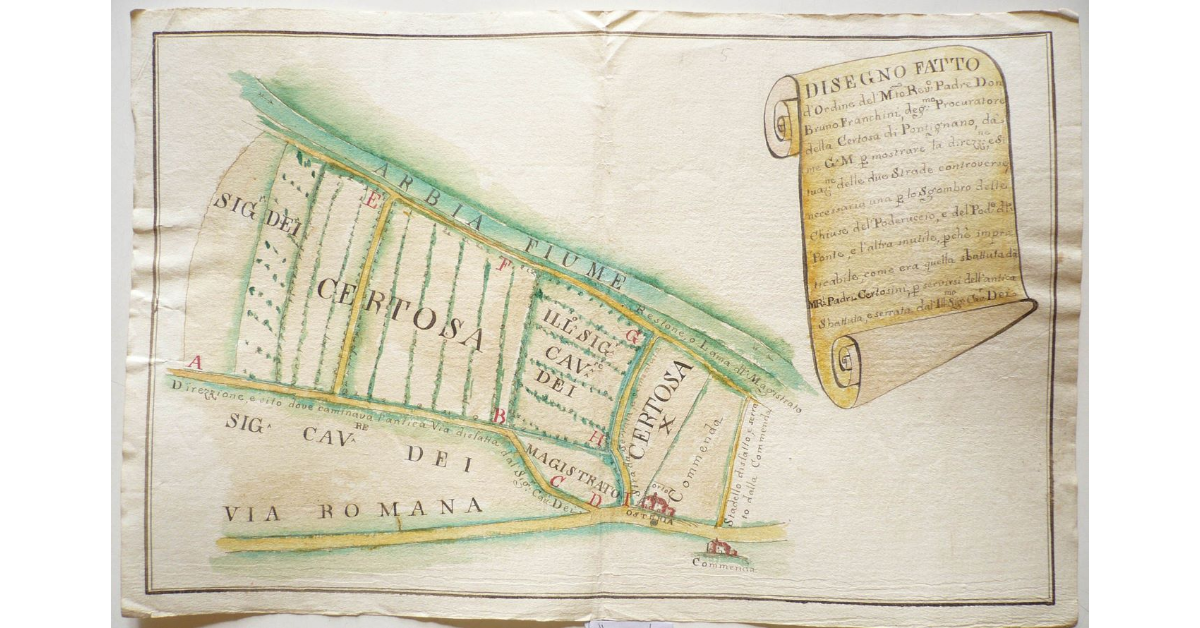 DISEGNO FATTO
d'Ordine del M:to Rev:o Padre Don
Bruno Franchini, deg:mo Procuratore
della Certosa di Pontignano, da
me G. M. p mostrare la direz:ne, e si
tuaz:ne delle due Strade controverse
necessaria una p lo Sgombro delle
Chiuse del Poderuccio, e del Pod:e di
Ponte, e l'altra inutile, pchè impra
ticabile, come era quella sbattuta da
MR:i Padri Certosini, p servirsi dell'antica
Sbattuta, e serrata dal Sig:r Cav: Dei.
ARBIA FIUME
Regione, o Lama del Magistrato
SIG:r DEI
E
CERTOSA
F
ILL:o SIG:
CAV:RE
DEI
G
CERTOSA
X
Commenda
A
Direzzione, e sito dove caminava l'antica Via disfatta dal Sig:r Cav: Dei
B
H
MAGISTRATO
C
D
I
OSTERIA
Stradello disfatto, e serra
to dalla Commenda
SIG:R CAV:RE DEI
VIA ROMANA
Commenda